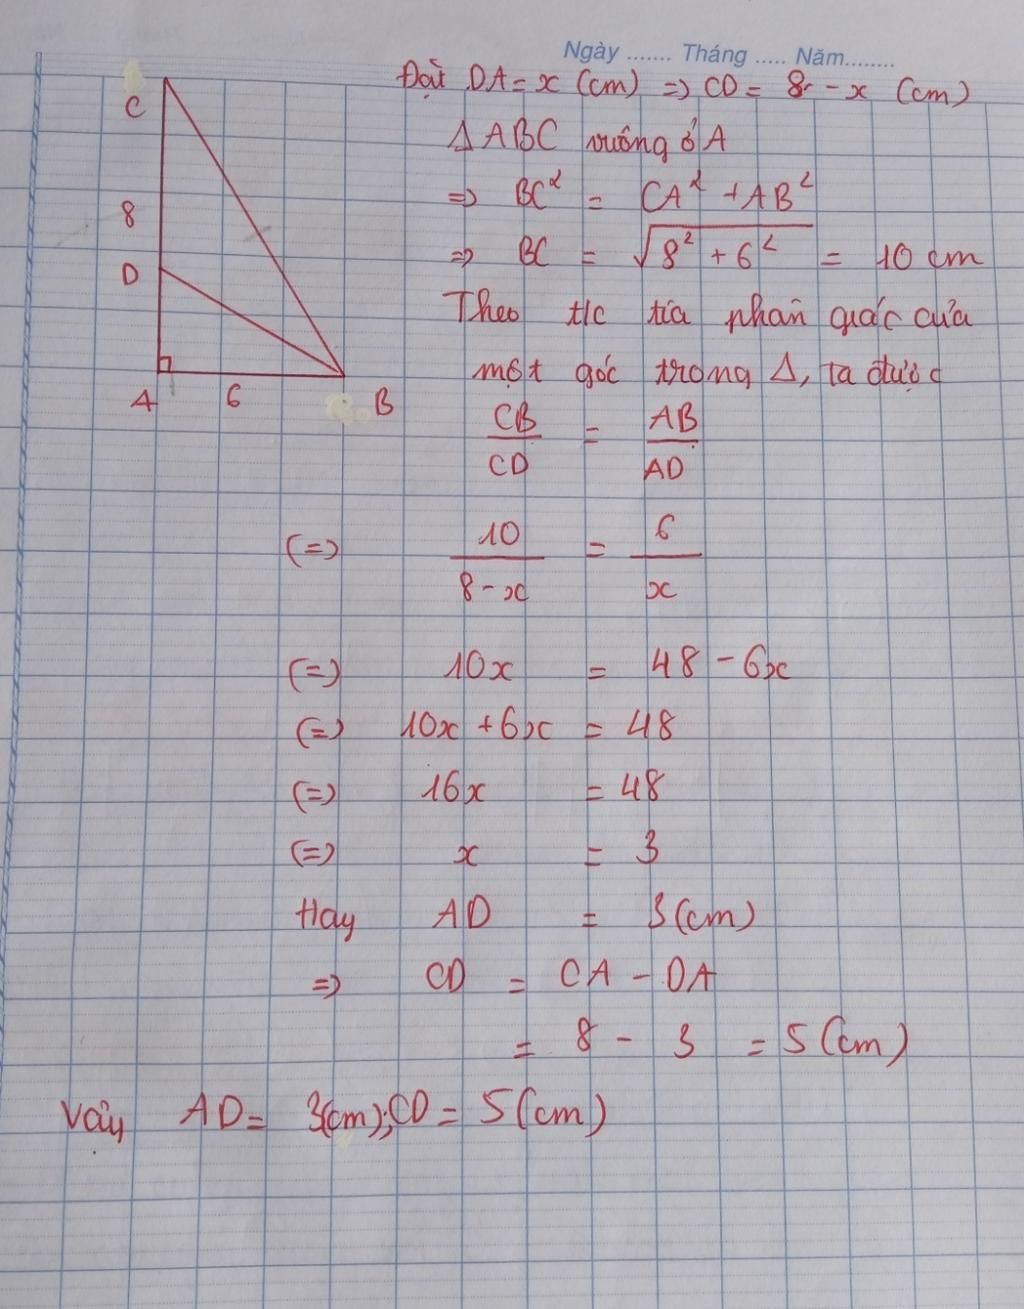 Ngày ....... Tháng ..... Năm........
Đặt DA = x (cm) => CD = 8 - x (cm)
C
Δ ABC vuông ở A
=> BC² = CA² + AB²
8
=> BC = √8² + 6² = 10 cm
D
Theo t/c tia phân guác của
một góc trong Δ, ta được
A 6 B
CB/CD = AB/AD
(=) 10/8-x = 6/x
(=) 10x = 48 - 6x
(=) 10x + 6x = 48
(=) 16x = 48
(=) x = 3
Hay AD = 3(cm)
=> CD = CA - DA
= 8 - 3 = 5 (cm)
Vậy AD = 3(cm); CD = 5 (cm)